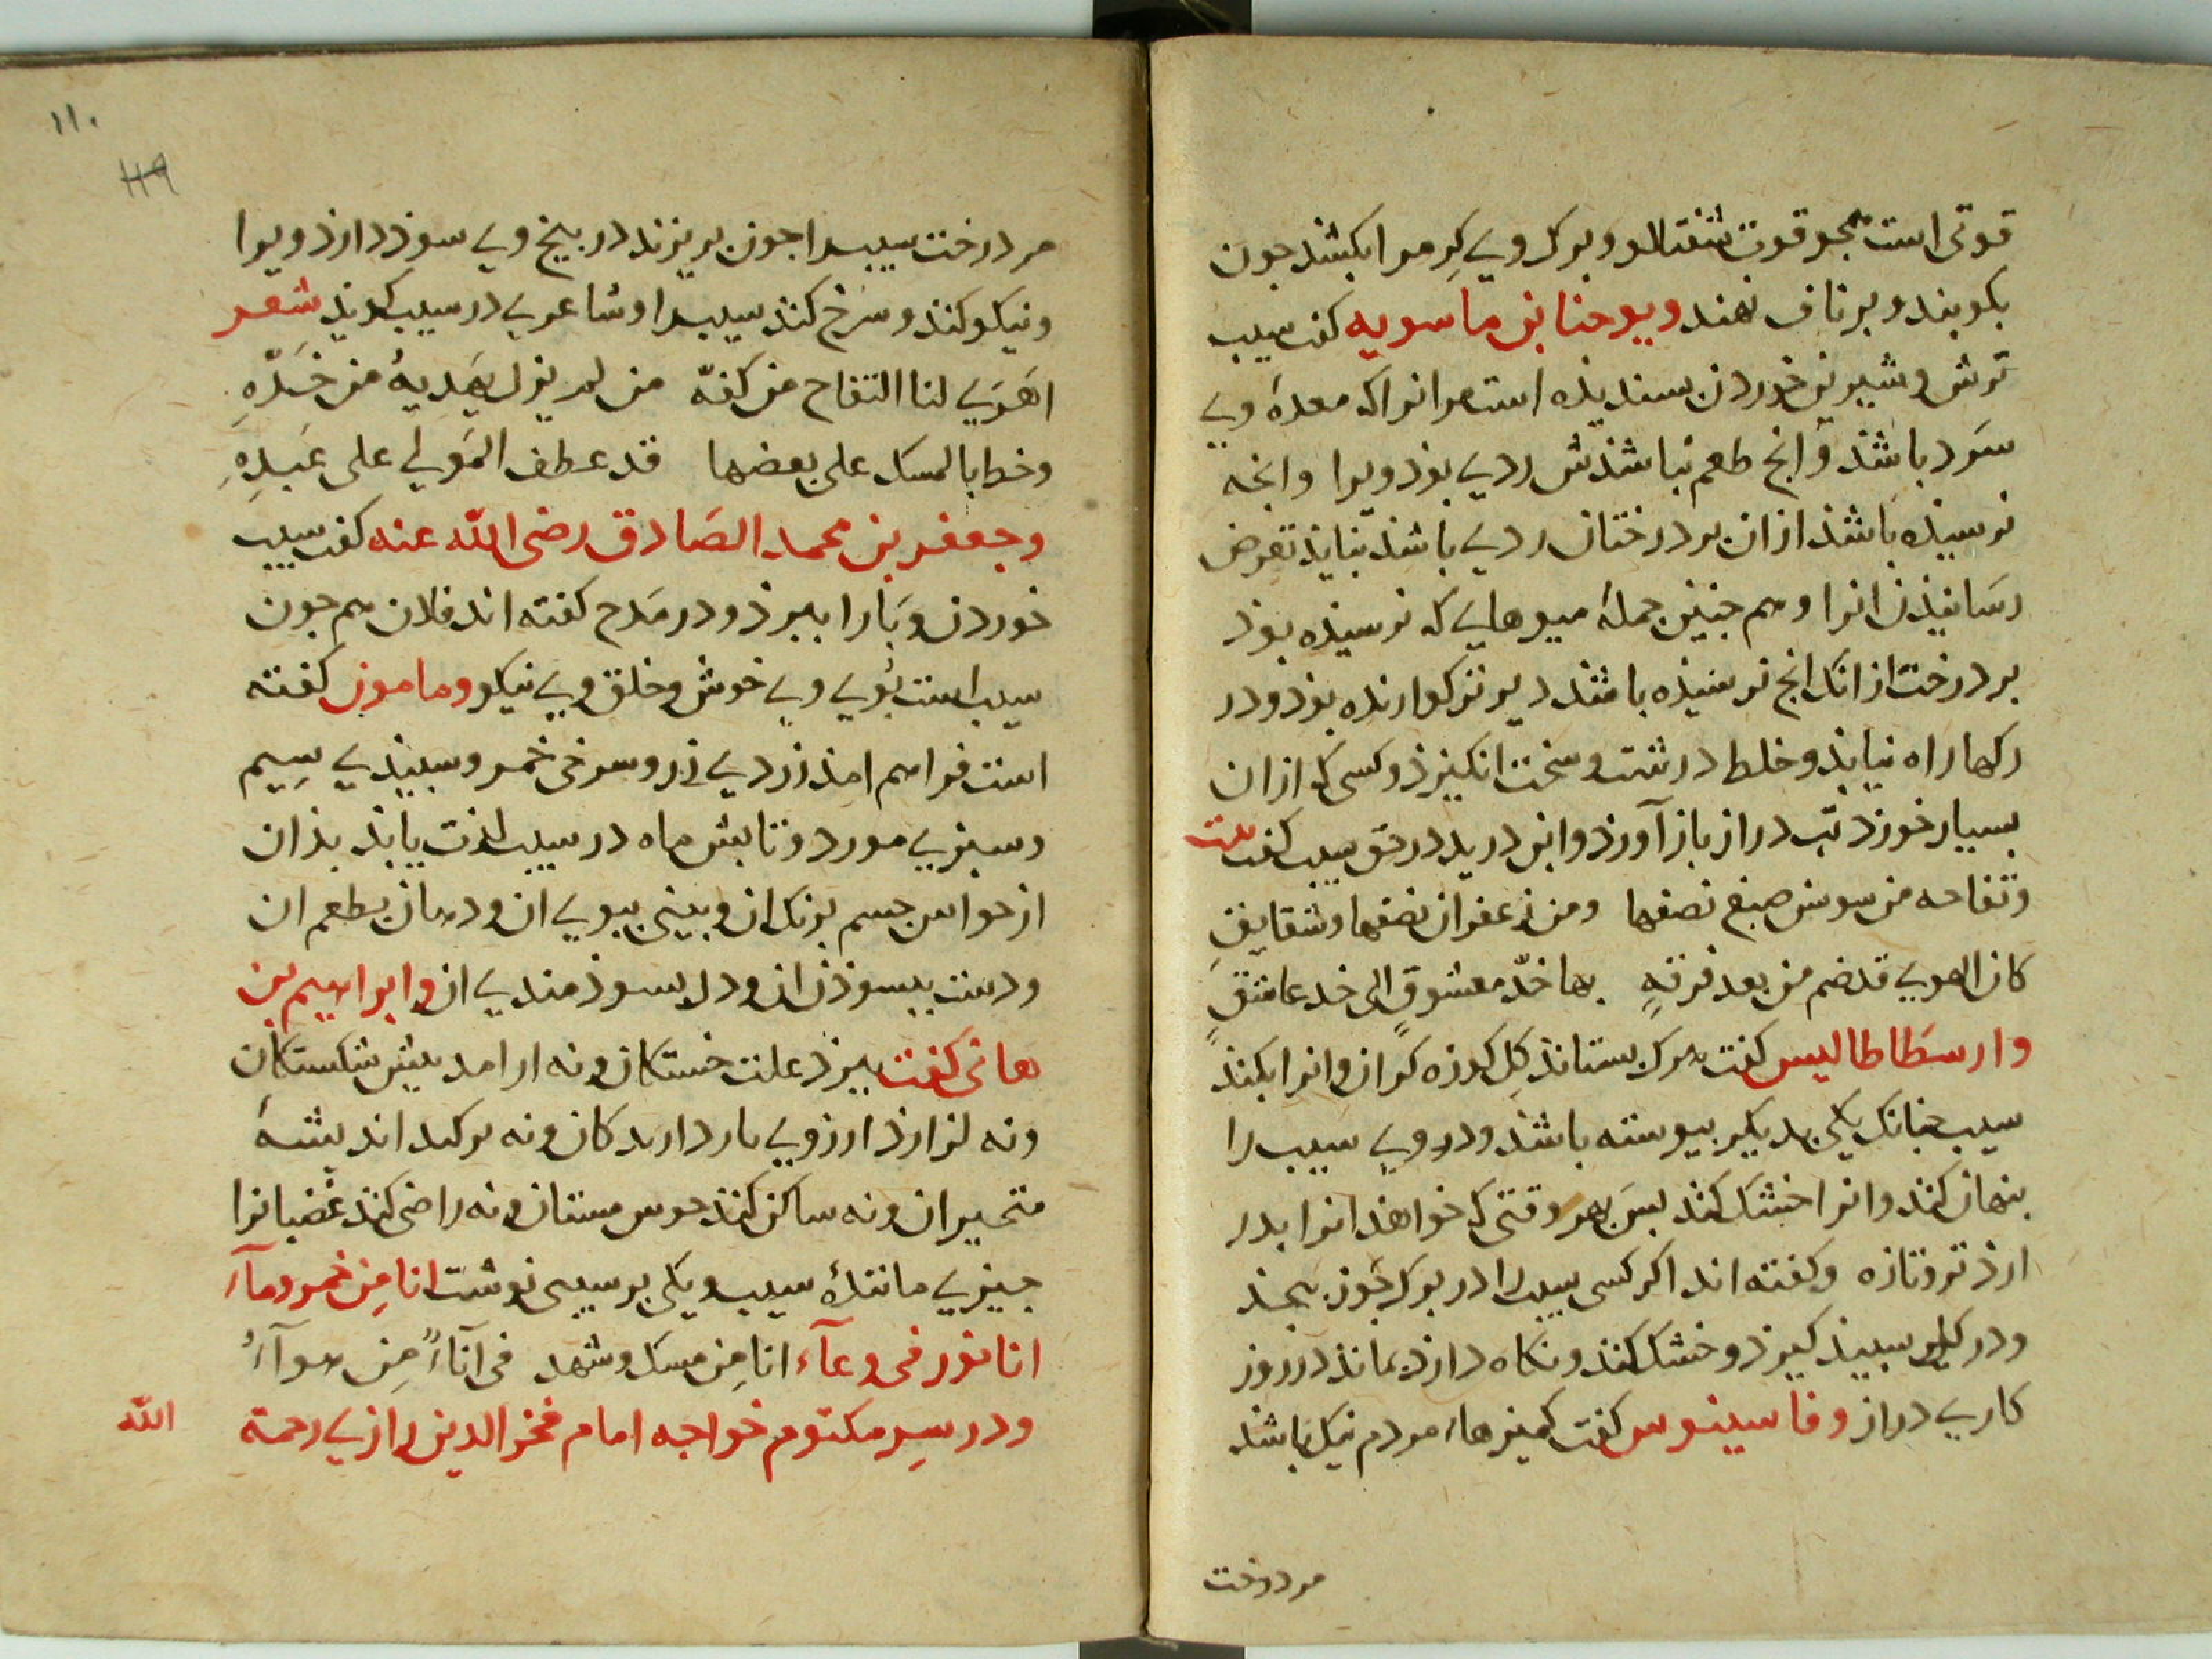 قوتی است همجو قوت شفتالو و برک وی کرم را بکشد جون
بکوبند و بر ناف نهند ویوحنا بن ماسویه کفت سیب
ترش و شیرین خوردن بسندیذه است مرانرا که معدهٔ وی
سرد باشذ و انج طعم نباشذش ردی بوذ ویرا وانجه
نرسیذه باشذ ازان بر درختان ردی باشذ نبایذ تعرض
رسانیذن انرا و هم جنین جملهٔ میوهایی که نرسیذه بوذ
بر درخت از انک انج نرسیذه باشد دیرتر کوارنده بوذ و در
رکها راه نیابذ و خلط درشت و سخت انکیزذ و کسی که ازان
بسیار خورذ تب دراز باز آورذ وابن درید در حق سیب کفت بیت
وتفاحه من سوسن صبغ نصفها ومن زعفران نصفها وشقایق
کان الهوی قد ضم من بعد فرقةٍ بها خدّ معشوقٍ الی خد عاشقٍ
وارسطاطالیس کفت هرک بستانذ کل کوزه کران وانرا بکند
سیب جنانک یکی بدیکر بیوسته باشذ ودر وی سیب را
بنهان کند وانرا خشک کند بس هر وقتی که خواهذ انرا بدر
ارذ تر وتازه وکفته اند اکر کسی سیب را در برک جوز بیجذ
ودر کل سبید کیرذ وخشک کند ونکاه دارذ بمانذ در روز
کاری دراز وفاسینوس کفت کمیزهاء مردم نیک باشذ
مر درخت
۱۱۰
119
مر درخت سیب را جون بریزند در بیخ وی سوذ دارذ ویرا
ونیکو کند وسرخ کند سیب را وشاعری در سیب کویذ شعر
اهوی لنا التفاح من کفّه من لم یزل یهدیهٔ من خدّهِ
وخط بالمسک علی بعضها قد عطف المولی علی عبدِهِ
وجعفر بن محمد الصادق رضی الله عنه کفت سیب
خوردن وبا را ببرذ ودر مدح کفته اند فلان هم جون
سیب است بوی وی خوش وخلق وی نیکو ومامون کفته
است فراهم امذ زردی زر وسرخی خمر وسبیذی سیم
وسبزی مورد وتابش ماه در سیب لذت یابذ بذان
از حواس جسم برنک ان وبینی ببوی ان ودهان بطعم ان
ودست ببسوذن ان ودل بسوذمندی ان وابراهیم بن
هانی کفت ببرذ علت خستکان ونه ارامد بیش شکستکان
ونه لزارذ ارزوی بارداریدکان ونه برکند اندیشهٔ
متحیران ونه ساکن کند جوش مستان ونه راضی کند غضبانرا
جیزی مانندهٔ سیب ویکی بر سیبی نوشت انا من خمر وماء
انا نور فی وعاء انا من مسک وشهد فی آناءً من هواءٔ
ودر سر مکتوم خواجه امام فخر الدین رازی رحمة
الله